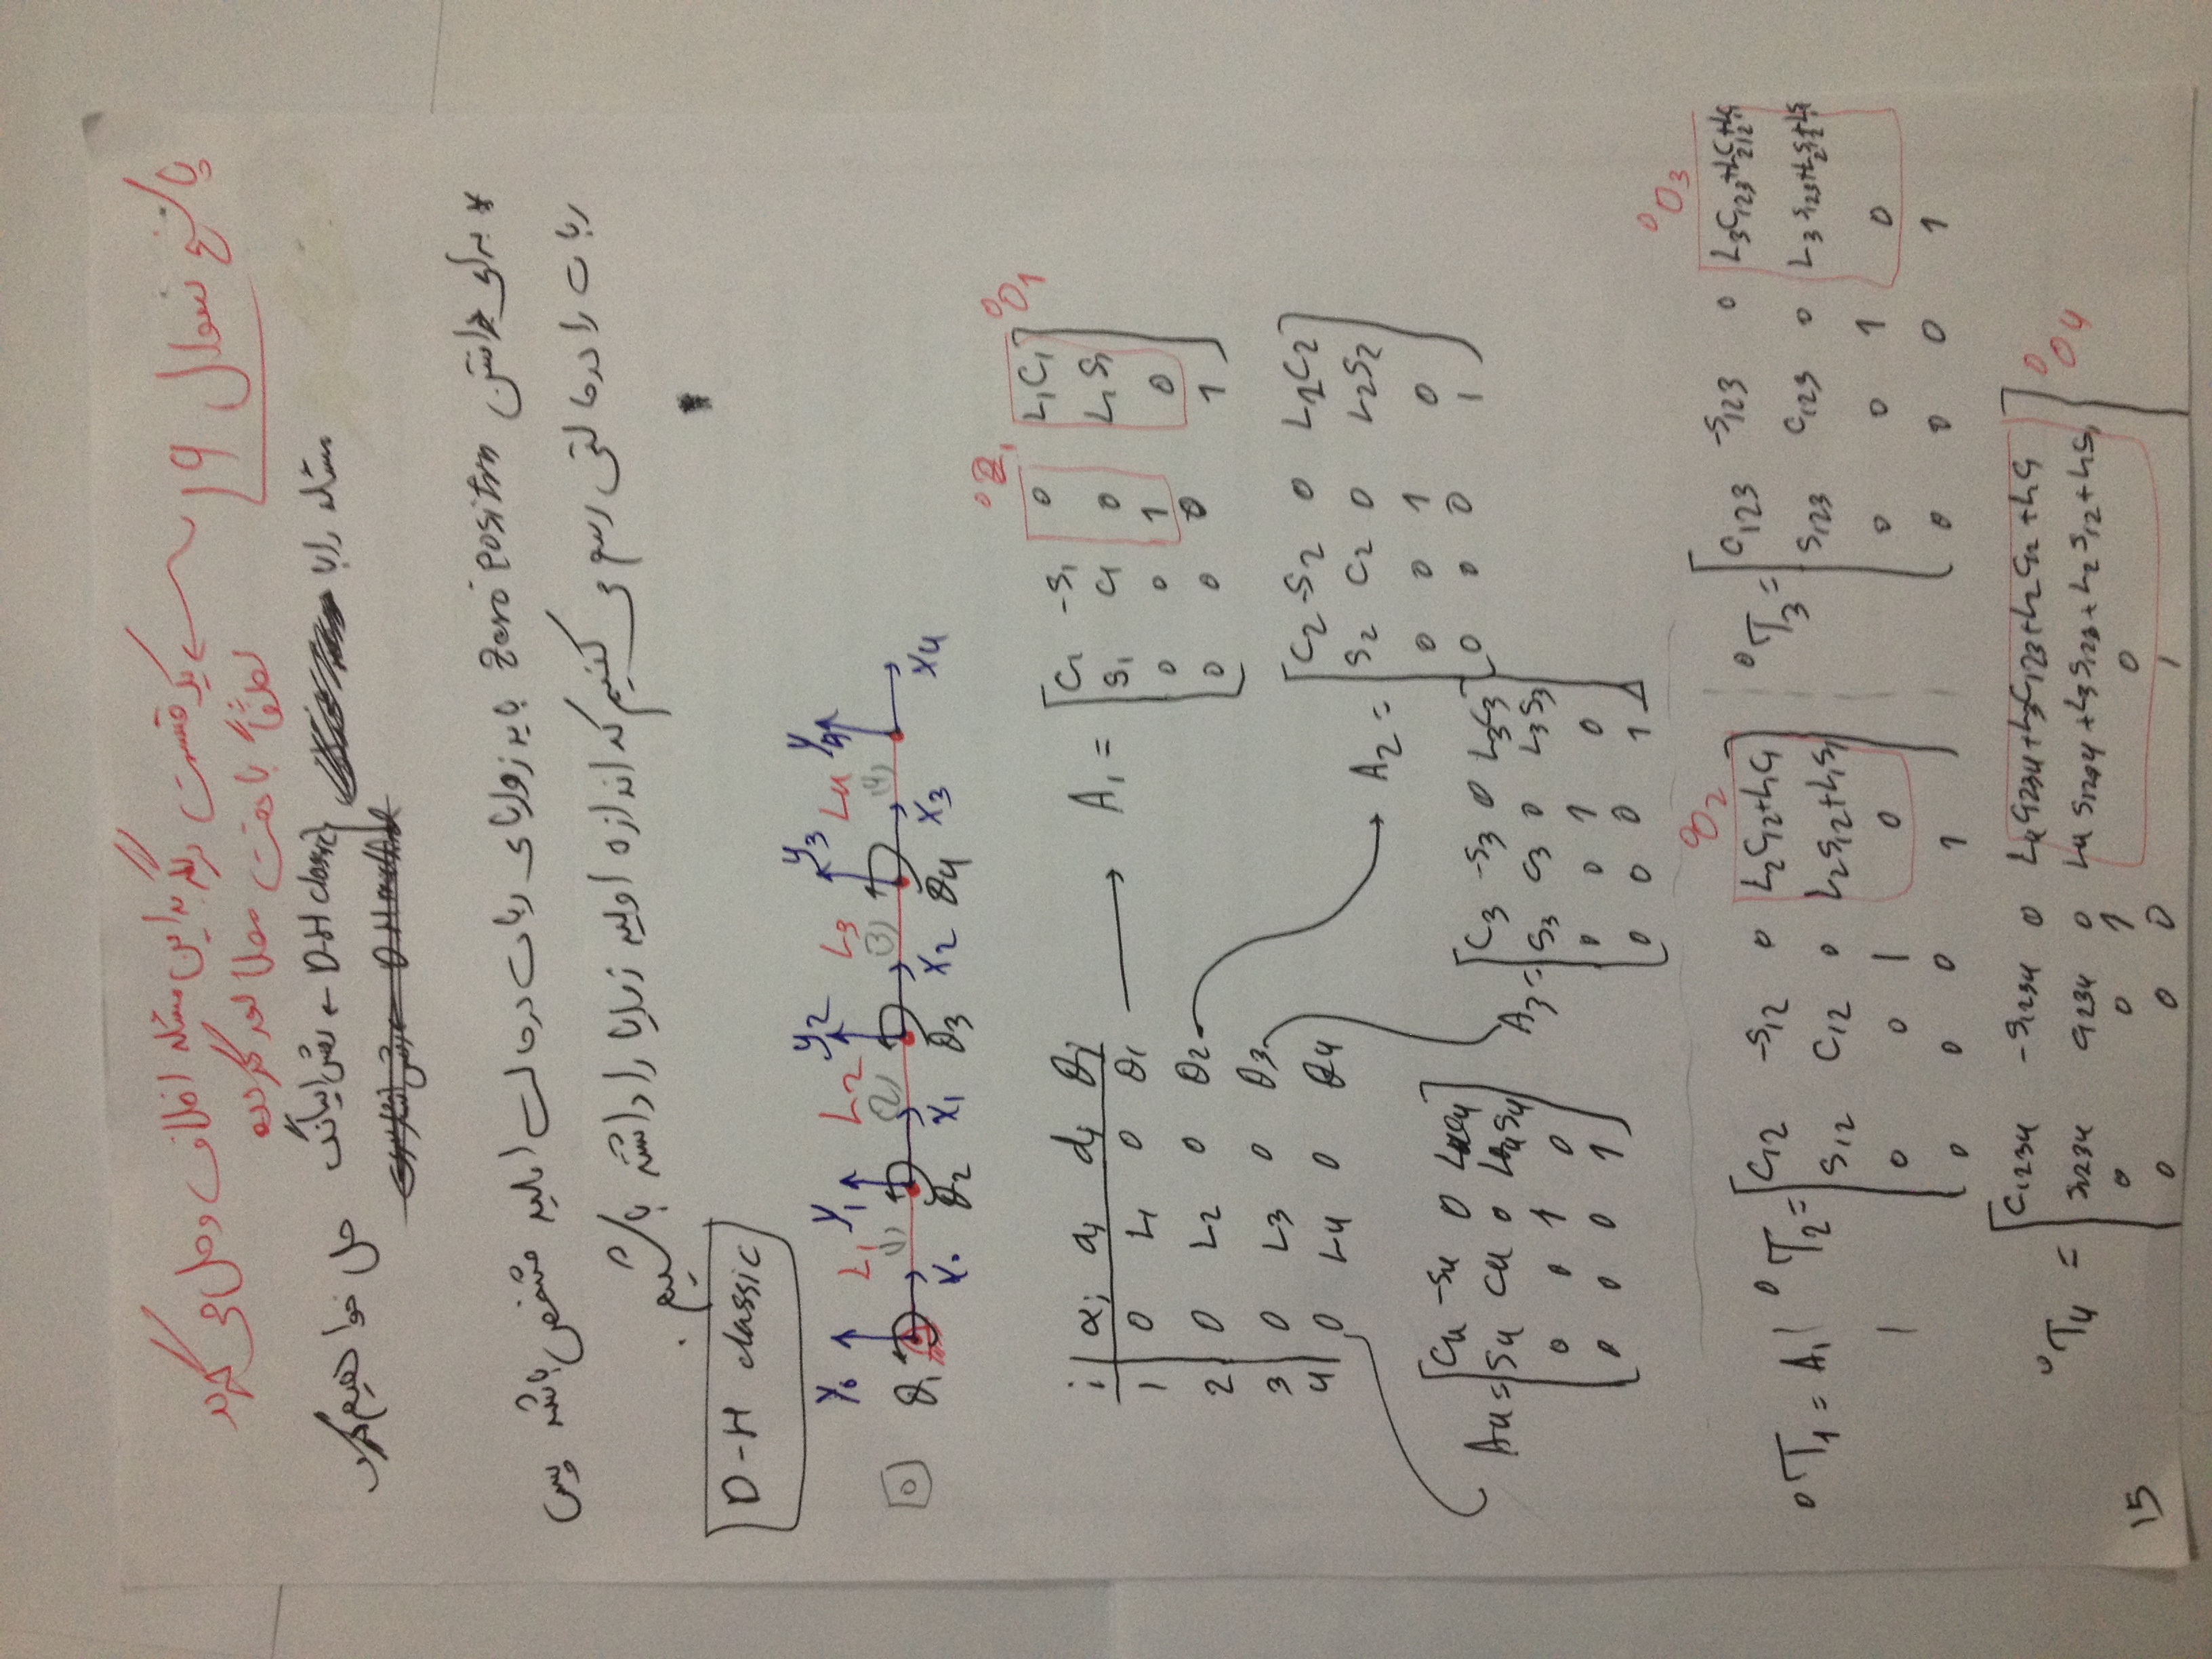 پاسخ سوال 19 ← یک قسمت دیگر به این مسئله اضافه و حل می گردد
لطفاً با دقت مطالعه گردد
مسئله را با D-H classic ← روش اسپانگ حل خواهیم کرد
* برای داشتن Zero Position باید زوایای ربات در حالت اولیه مشخص باشد پس
ربات را در حالتی رسم می کنیم که اندازه اولیه زوایا را داشته باشیم.
D-H classic
Y₀ L₁ Y₁ L₂ y₂ L₃ y₃ L₄ Y₄
0 θ₁ (1) (2) (3) (4)
X₀ θ₂ X₁ θ₃ X₂ θ₄ X₃ X₄
i αᵢ aᵢ dᵢ θᵢ
1 0 L₁ 0 θ₁
2 0 L₂ 0 θ₂
3 0 L₃ 0 θ₃
4 0 L₄ 0 θ₄
⁰Z₁ ⁰O₁
A₁ = [C₁ -S₁ 0 L₁C₁
S₁ C₁ 0 L₁S₁
0 0 1 0
0 0 0 1]
A₂ = [C₂ -S₂ 0 L₂C₂
S₂ C₂ 0 L₂S₂
0 0 1 0
0 0 0 1]
A₄ = [C₄ -S₄ 0 L₄C₄
S₄ C₄ 0 L₄S₄
0 0 1 0
0 0 0 1]
A₃ = [C₃ -S₃ 0 L₃C₃
S₃ C₃ 0 L₃S₃
0 0 1 0
0 0 0 1]
⁰T₁ = A₁
⁰O₂
⁰T₂ = [C₁₂ -S₁₂ 0 L₂C₁₂+L₁C₁
S₁₂ C₁₂ 0 L₂S₁₂+L₁S₁
0 0 1 0
0 0 0 1]
⁰O₃
⁰T₃ = [C₁₂₃ -S₁₂₃ 0 L₃C₁₂₃+L₂C₁₂+L₁C₁
S₁₂₃ C₁₂₃ 0 L₃S₁₂₃+L₂S₁₂+L₁S₁
0 0 1 0
0 0 0 1
⁰T₄ = [C₁₂₃₄ -S₁₂₃₄ 0 L₄C₁₂₃₄+L₃C₁₂₃+L₂C₁₂+L₁C₁
S₁₂₃₄ C₁₂₃₄ 0 L₄S₁₂₃₄+L₃S₁₂₃+L₂S₁₂+L₁S₁
0 0 1 0
0 0 0 1] ⁰O₄
15